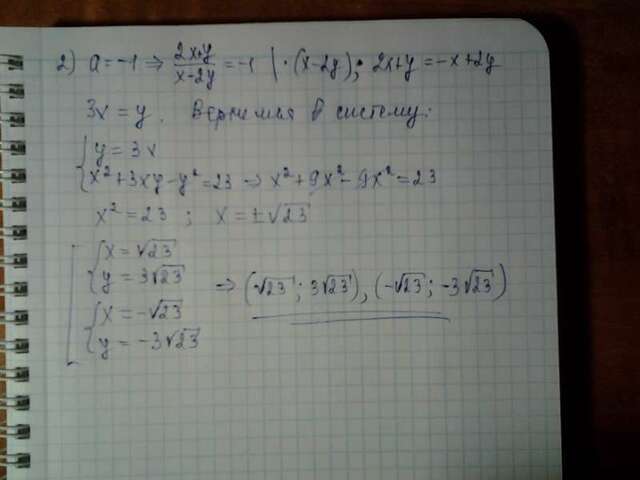 2) a = -1 ⇒ (2x+y)/(x-2y) = -1 | · (x-2y); 2x+y = -x+2y
3x = y. Вернемся в систему:
{ y = 3x
{ x² + 3xy - y² = 23 ⇒ x² + 9x² - 9x² = 23
x² = 23 ; x = ±√23
[ { x = √23
{ y = 3√23 ⇒ (√23 ; 3√23), (-√23 ; -3√23)
{ x = -√23
{ y = -3√23